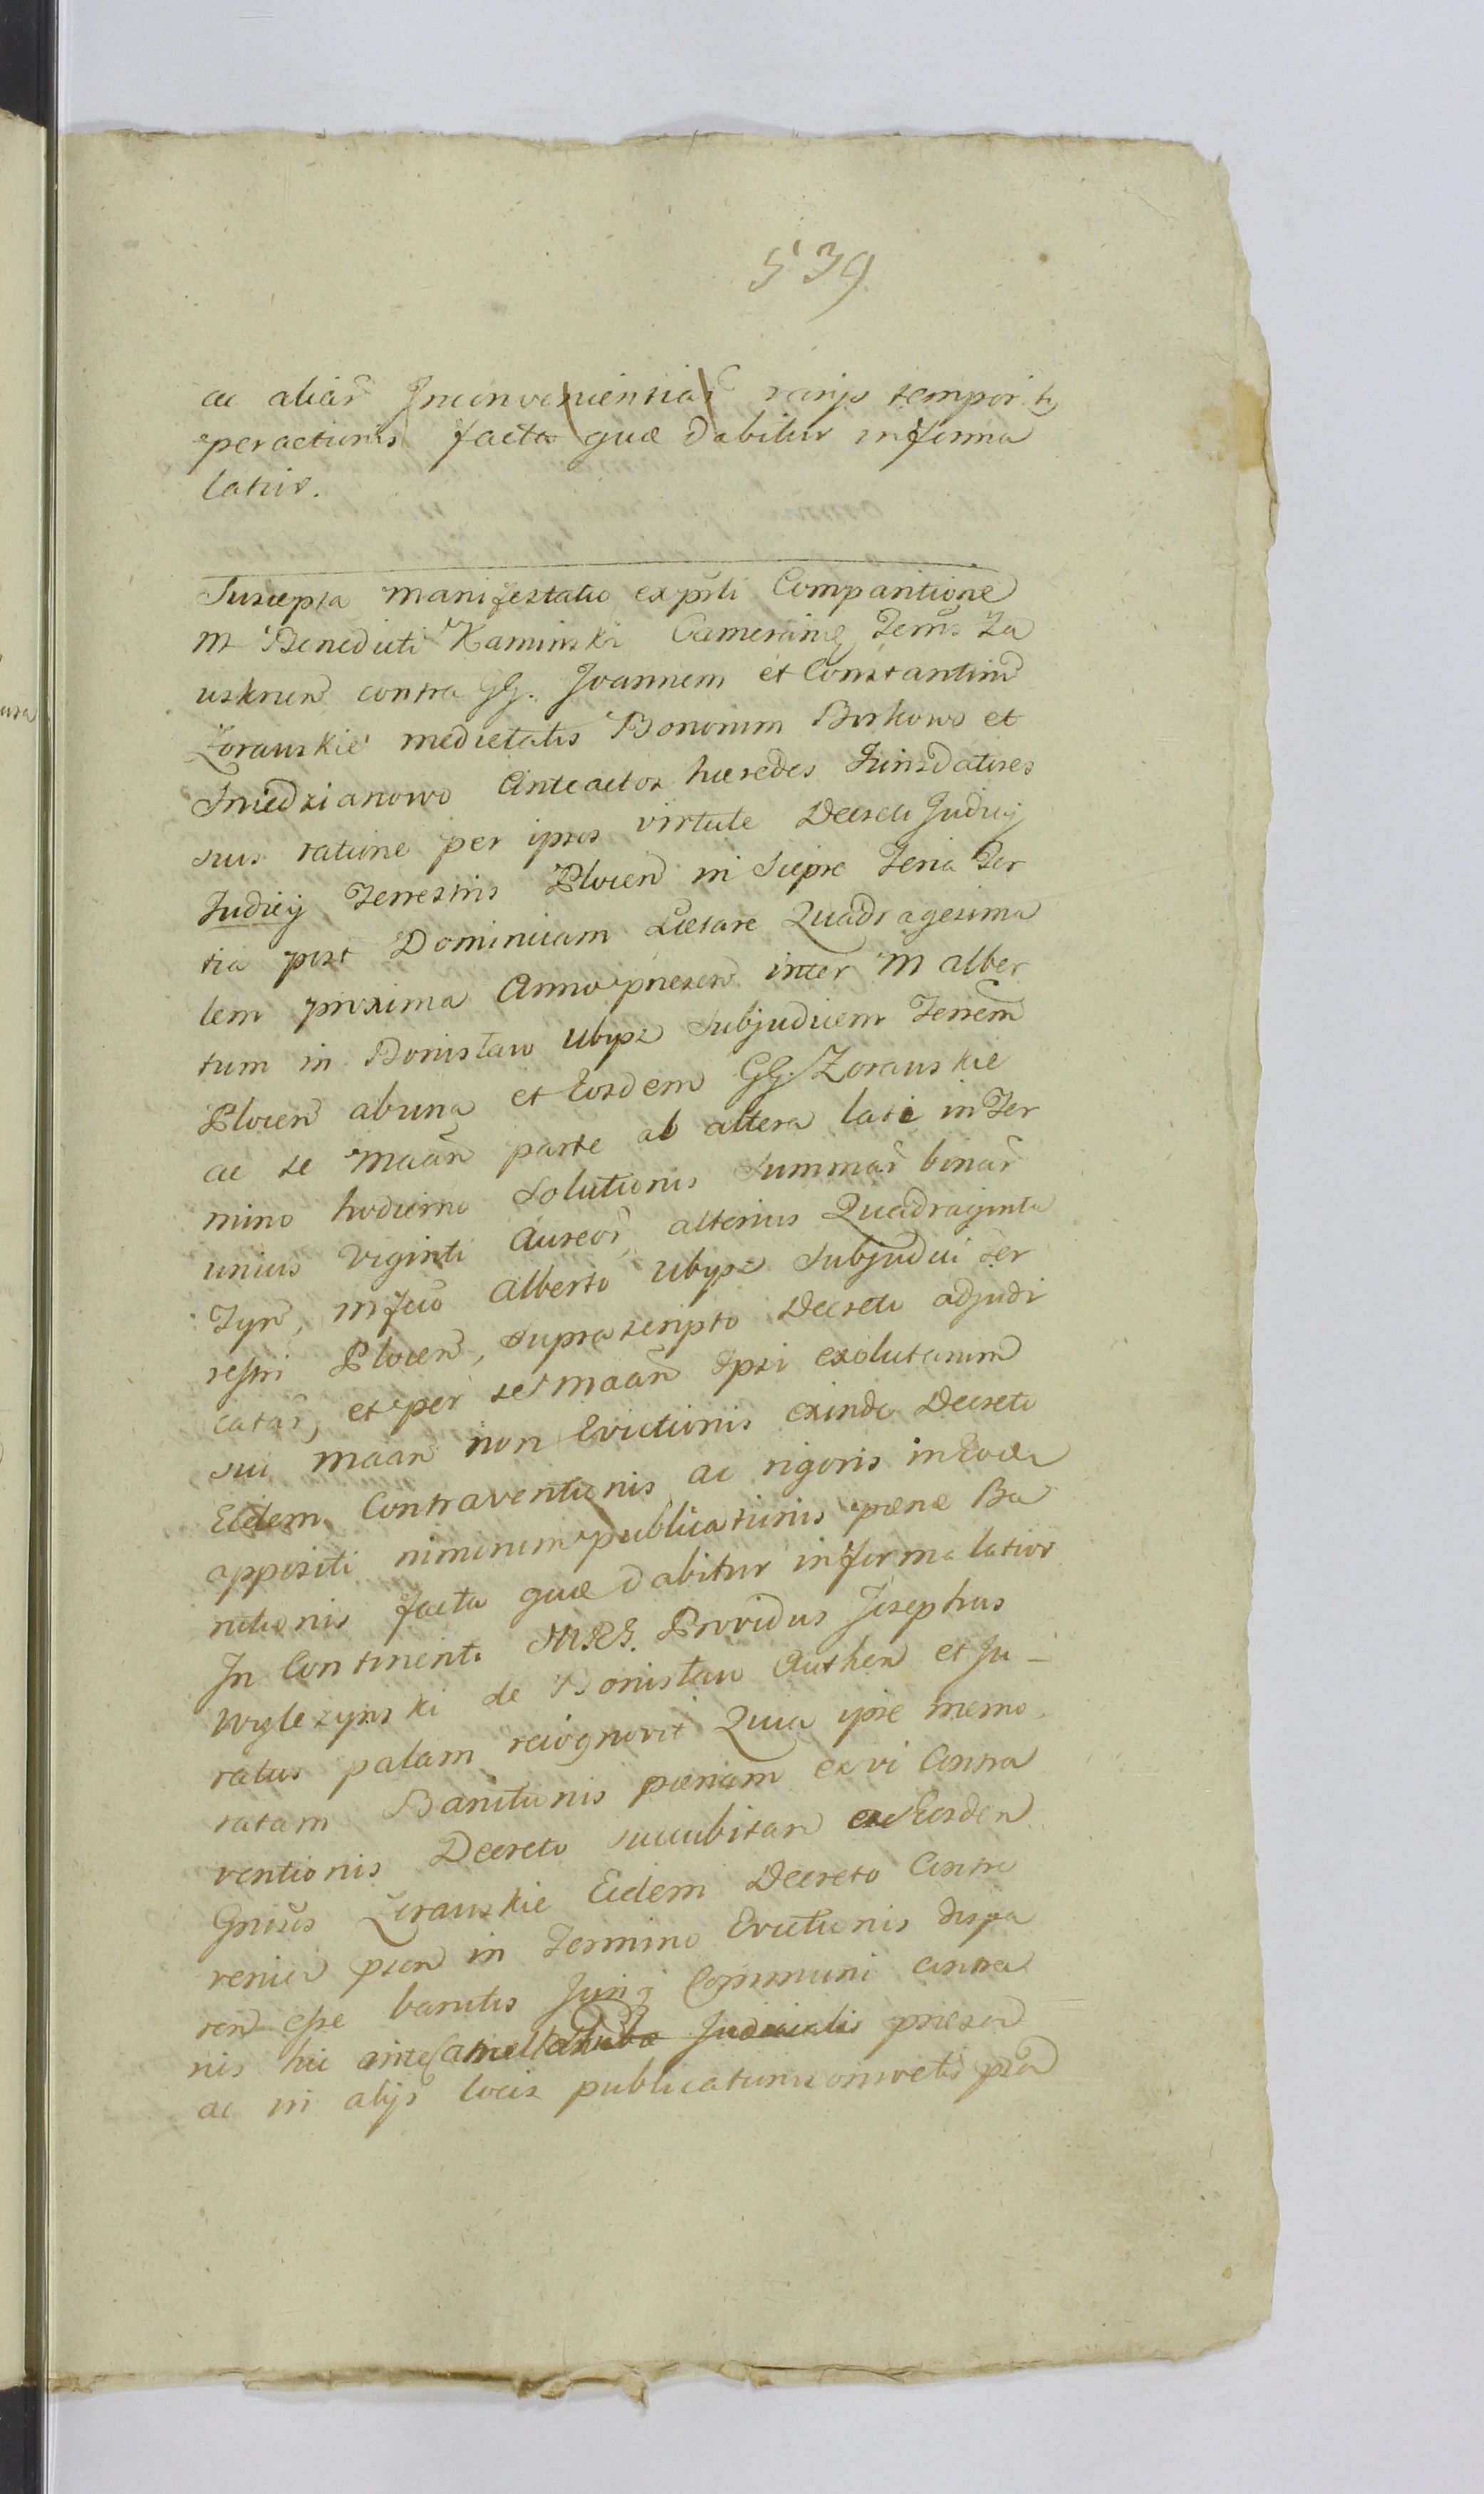 539
ac aliar Inconvenientiar varijs tempor
peractionis facta quæ dabitur in forma
latior.
Suscepta manifestatio exp̃sti Comparitione
M Benedicti Kaminski Camerarij Terrıs Za
uskrnen contra GG. Joannem et Constantinũ
Zorawskie medietatis Bonorum Borkowo et
Sniedzianowo Anteactos hæredes Jurisdatores
suos ratione per ipsos virtute Decreti Judicij
Judicij Terrestris Plocen in Siepre Feria Ter
tia post Dominicam Lætare Quadragesima
lem proxima Anno præsen inter M alber
tum in Bonisław Ubysz Subjudicem Terrem
Plocen abuna et Eosdem GG. Zorauskie
ac se Maañ parte ab altera lati in Ter
mino hodierno Solutionis Summar̃ binar̃
unius Viginti Aureor̃, alterius Quadraginta
Tyn, Mfico Alberto Ubysz Subjudici Ter
restri Plocen, suprascripto Decreto adjudi
catar̃, et per se Maañ Ipsi exolutarum
sui Maañ non Evictionis exinde Decreto
Eidem Contraventionis ac rigoris in Eodem
appositi nimirum publicationis pænæ Ba
nitionis facta quæ dabitur in forma latior
In Continenti MRG. Providus Josephus
Wyglezynski de Bonisław Authen et Ju-
ratus palam recognovit Quia ipse memo
ratam Banitionis pænam ex vi Contra
ventionis Decreto succubitam ex Eosdem
Gnosos Zorauskie Eidem Decreto Contra
venien pten in Termino Evictionis dispa
ren esse banitos Jung Communi contra
nis hic ante Cancellar Judicialis præsen
ac in alijs locis publicationi consvetis pten